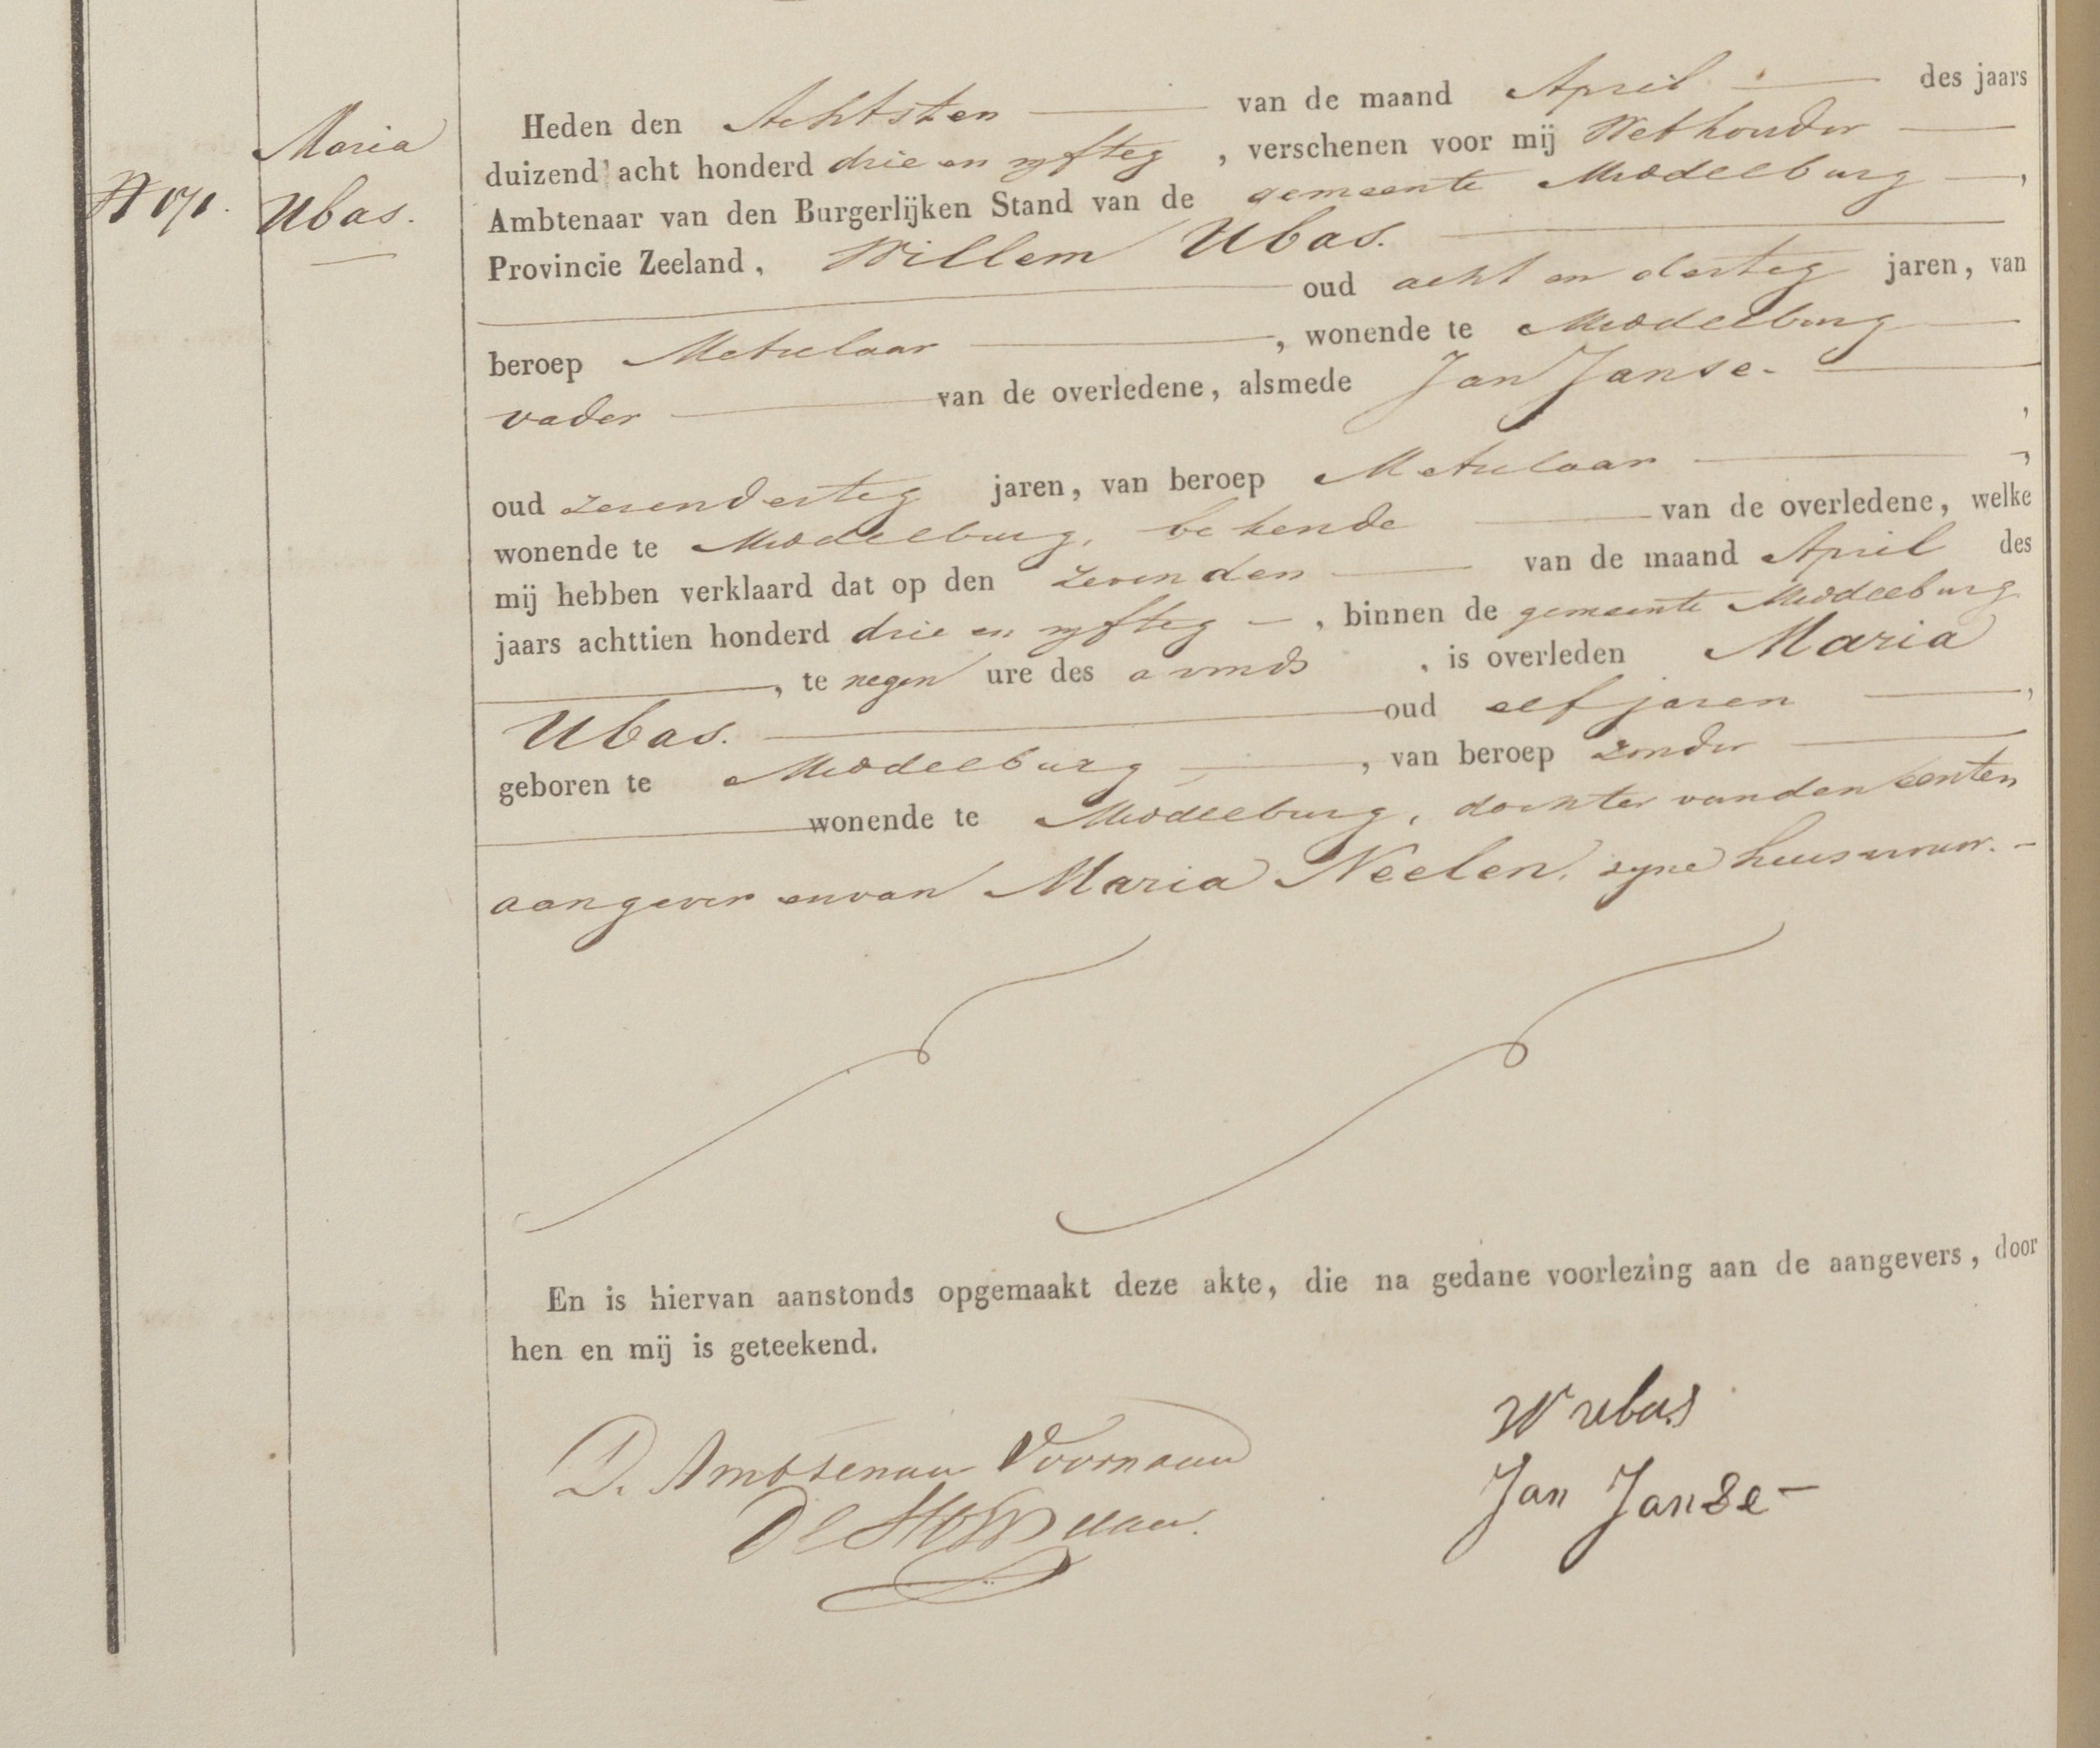 Maria
Ubas.
N 171.
Heden den Achtsten van de maand April des jaars
duizend acht honderd drie en vyftig, verschenen voor mij Wethouder
Ambtenaar van den Burgerlijken Stand van de gemeente Middelburg,
Provincie Zeeland, Willem Ubas.
oud acht en dertig jaren, van
beroep Metselaar, wonende te Middelburg
vader van de overledene, alsmede Jan Janse.
,
oud zevendertig jaren, van beroep Metselaar,
wonende te Middelburg, bekende van de overledene, welke
mij hebben verklaard dat op den zevenden van de maand April des
jaars achttien honderd drie en vyftig, binnen de gemeente Middelburg
, te negen ure des avonds, is overleden Maria
Ubas. oud elf jaren,
geboren te Middelburg, van beroep zonder
wonende te Middelburg, dochter van den eersten
aangever en van Maria Neelen, zyne huisvrouw.
En is hiervan aanstonds opgemaakt deze akte, die na gedane voorlezing aan de aangevers, door
hen en mij is geteekend.
W ubas
D. Ambtenaar Voornoemd
Jan Janse